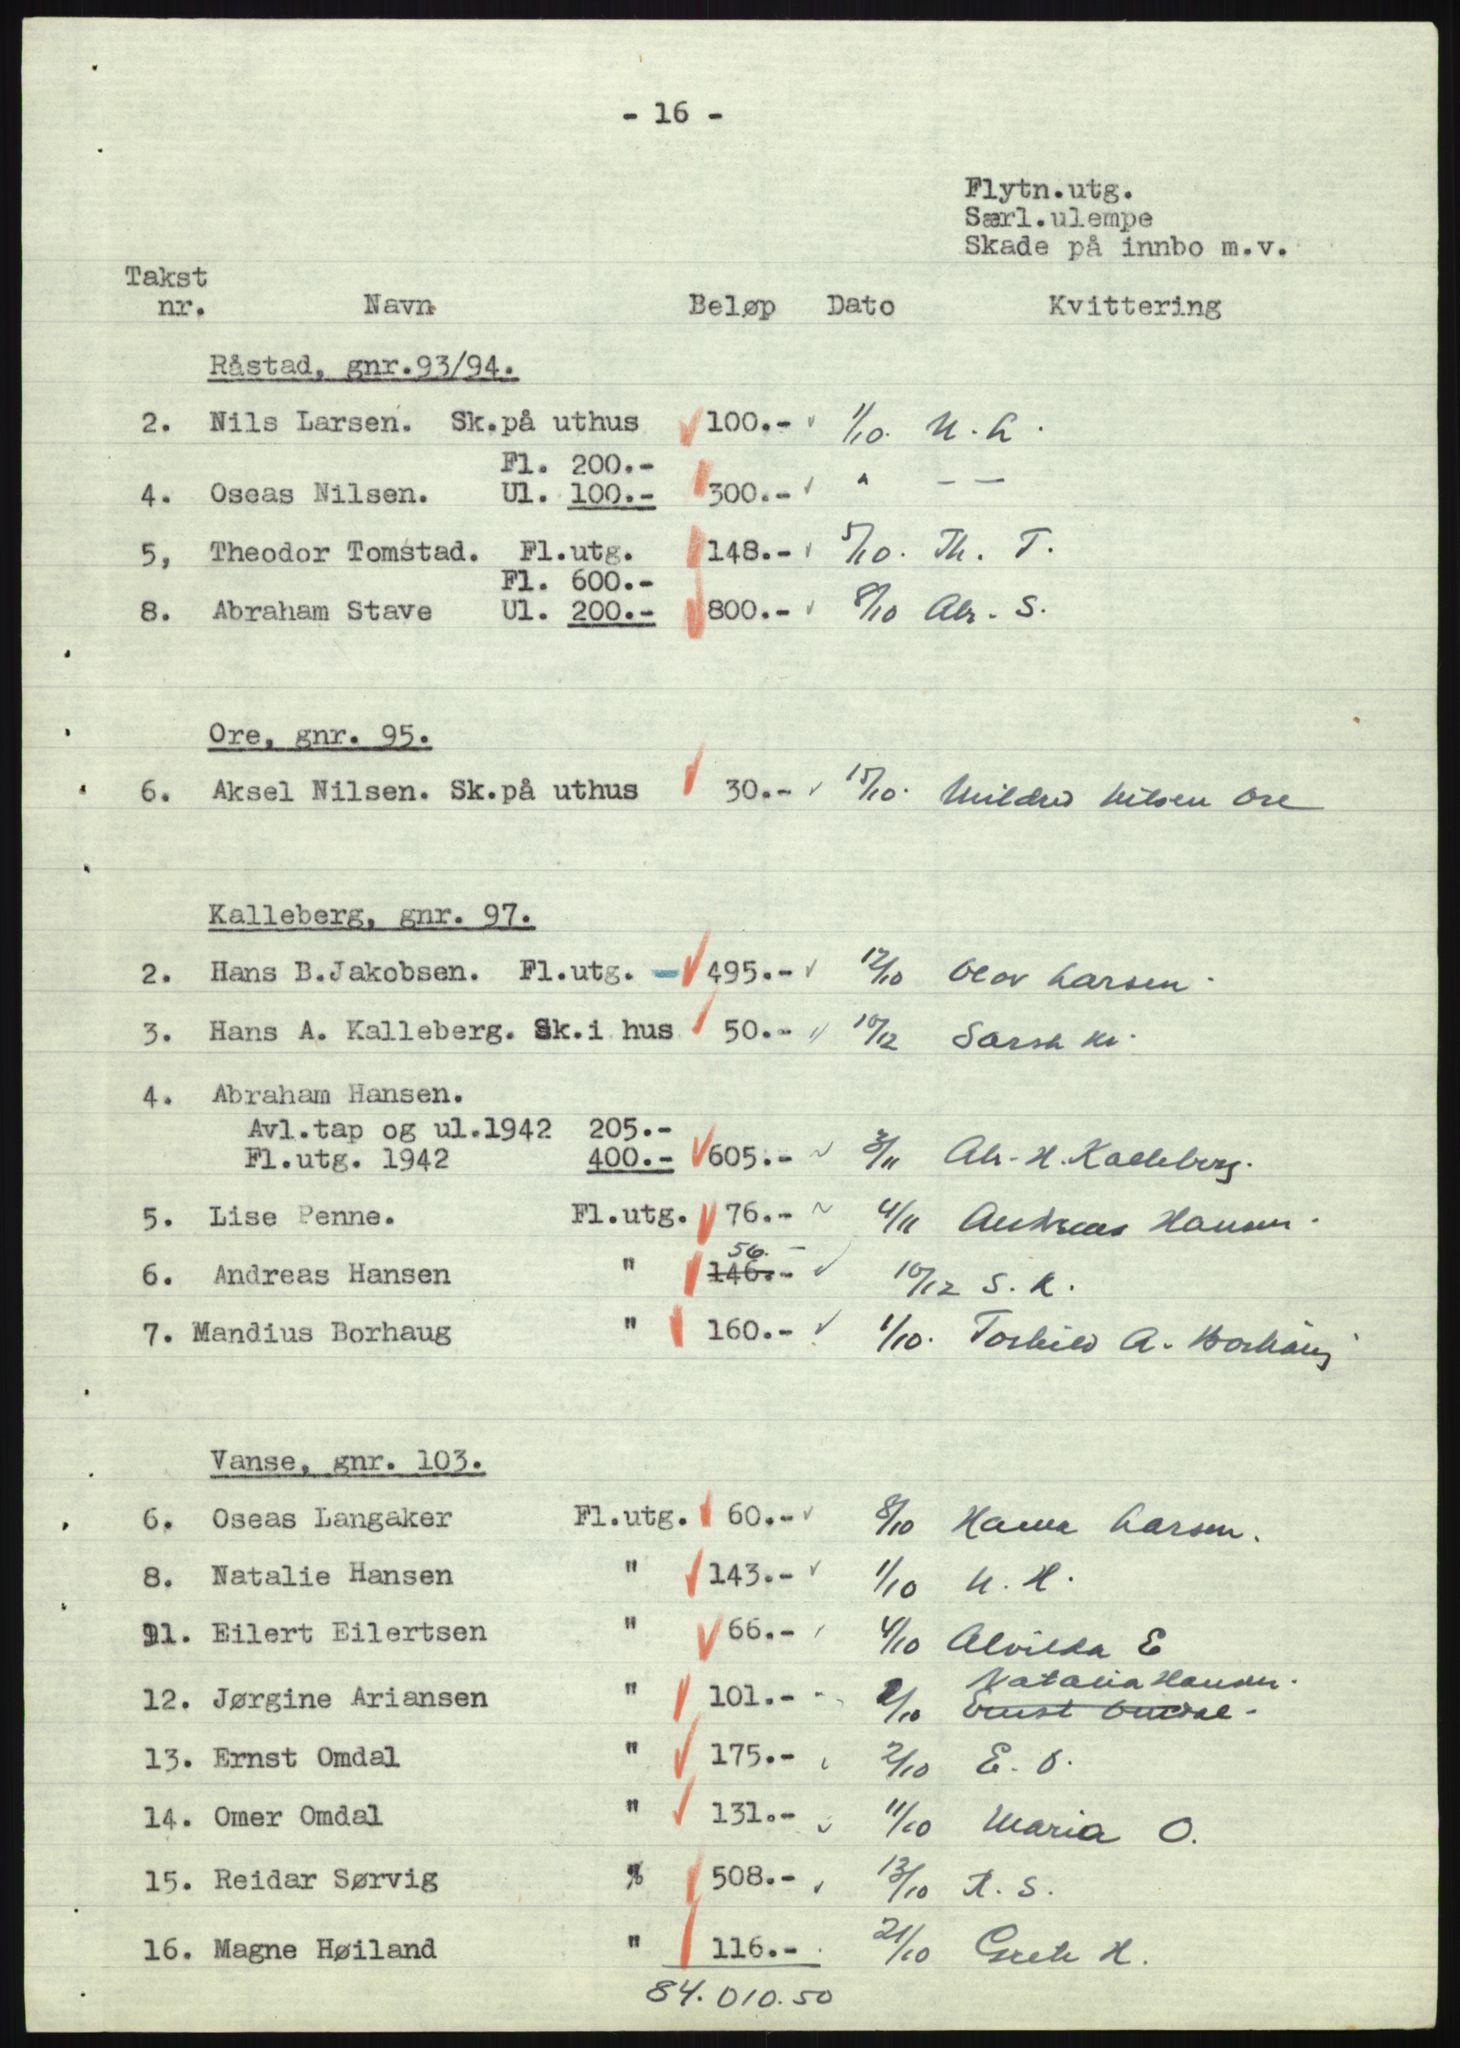 - 16 -
Flytn.utg.
Særl.ulempe
Skade på innbo m.v.
Takst
nr. Navn Beløp Dato Kvittering
Råstad, gnr.93/94.
2. Nils Larsen. Sk.på uthus 100.- 1/10. N. L.
Fl. 200.-
4. Oseas Nilsen. Ul. 100.- 300.- " — —
5, Theodor Tomstad. Fl.utg. 148.- 5/10. Th. T.
Fl. 600.-
8. Abraham Stave Ul. 200.- 800.- 8/10 Abr. S.
Ore, gnr. 95.
6. Aksel Nilsen. Sk.på uthus 30.- 15/10. Mildred Nilsen Ore
Kalleberg, gnr. 97.
2. Hans B.Jakobsen. Fl.utg. 495.- 12/10 Olov Larsen.
3. Hans A. Kalleberg. Sk.i hus 50.- 10/12 Sarah
4. Abraham Hansen.
Avl.tap og ul.1942 205.-
Fl.utg. 1942 400.- 605.- 3/11 Abr. H. Kalleberg.
5. Lise Penne. Fl.utg. 76.- 4/11 Andreas Hansen.
56.-
6. Andreas Hansen " 146.- 10/12 S. K.
7. Mandius Borhaug " 160.- 1/10. Torhild A. Borhaug
Vanse, gnr. 103.
6. Oseas Langaker Fl.utg. 60.- 8/10 Hanna Larsen.
8. Natalie Hansen " 143.- 1/10 N. H.
11. Eilert Eilertsen " 66.- 4/10 Alvilda E
Natalia Hansen.
12. Jørgine Ariansen " 101.- 2/10 Ernst Omdal.
13. Ernst Omdal " 175.- 2/10 E. O.
14. Omer Omdal " 131.- 11/10 Maria O.
15. Reidar Sørvig " 508.- 13/10 R. S.
16. Magne Høiland " 116.- 21/10 Grete H.
84.010.50